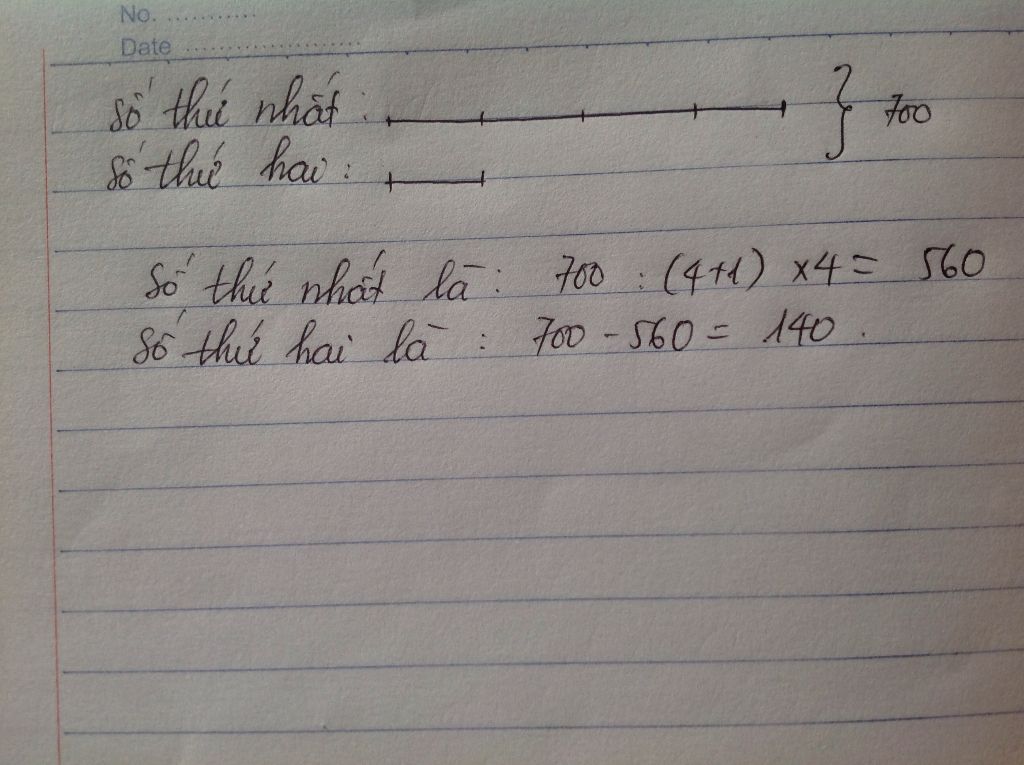 No. ............
Date .......................
Số thứ nhất : } 700
Số thứ hai :
Số thứ nhất là : 700 : (4+1) x4 = 560
Số thứ hai là : 700 - 560 = 140 .